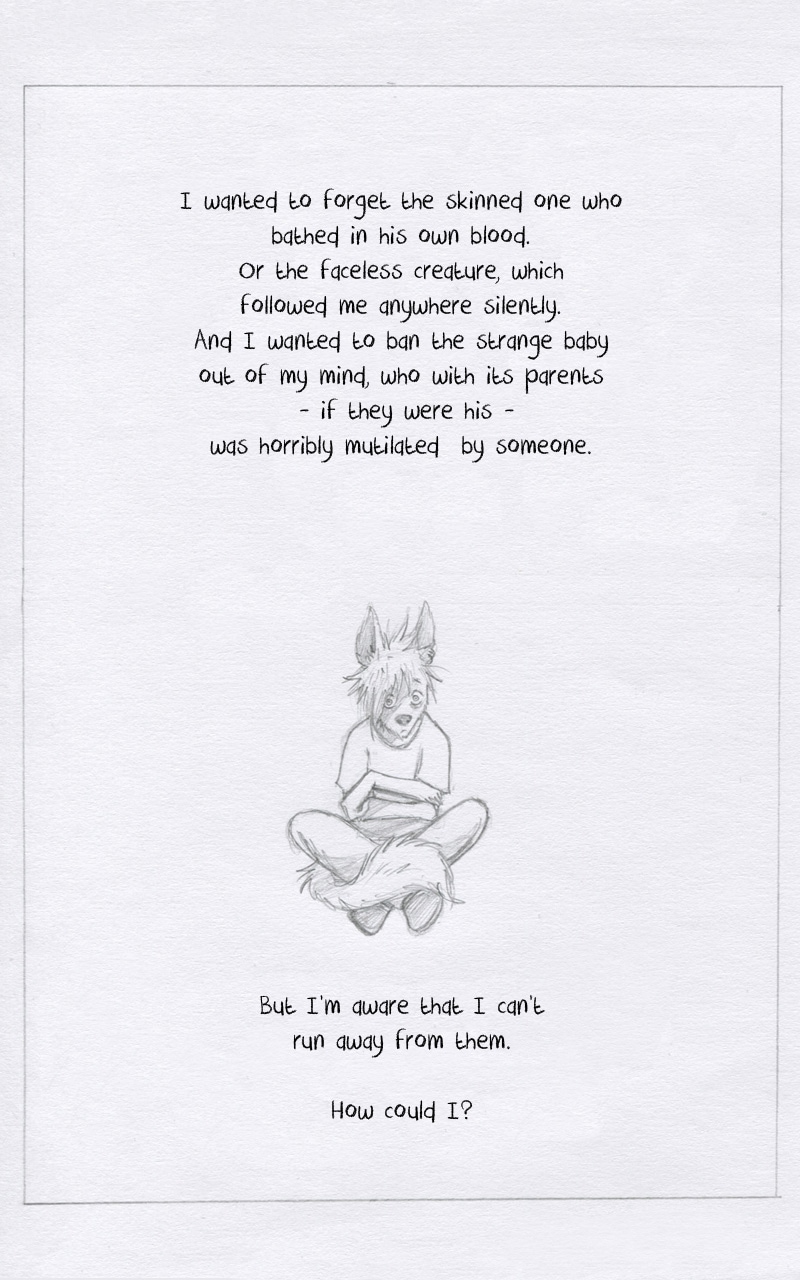 I wanted to forget the skinned one who
bathed in his own blood.
Or the faceless creature, which
followed me anywhere silently.
And I wanted to ban the strange baby
out of my mind, who with its parents
- if they were his -
was horribly mutilated by someone.
But I'm aware that I can't
run away from them.
How could I?